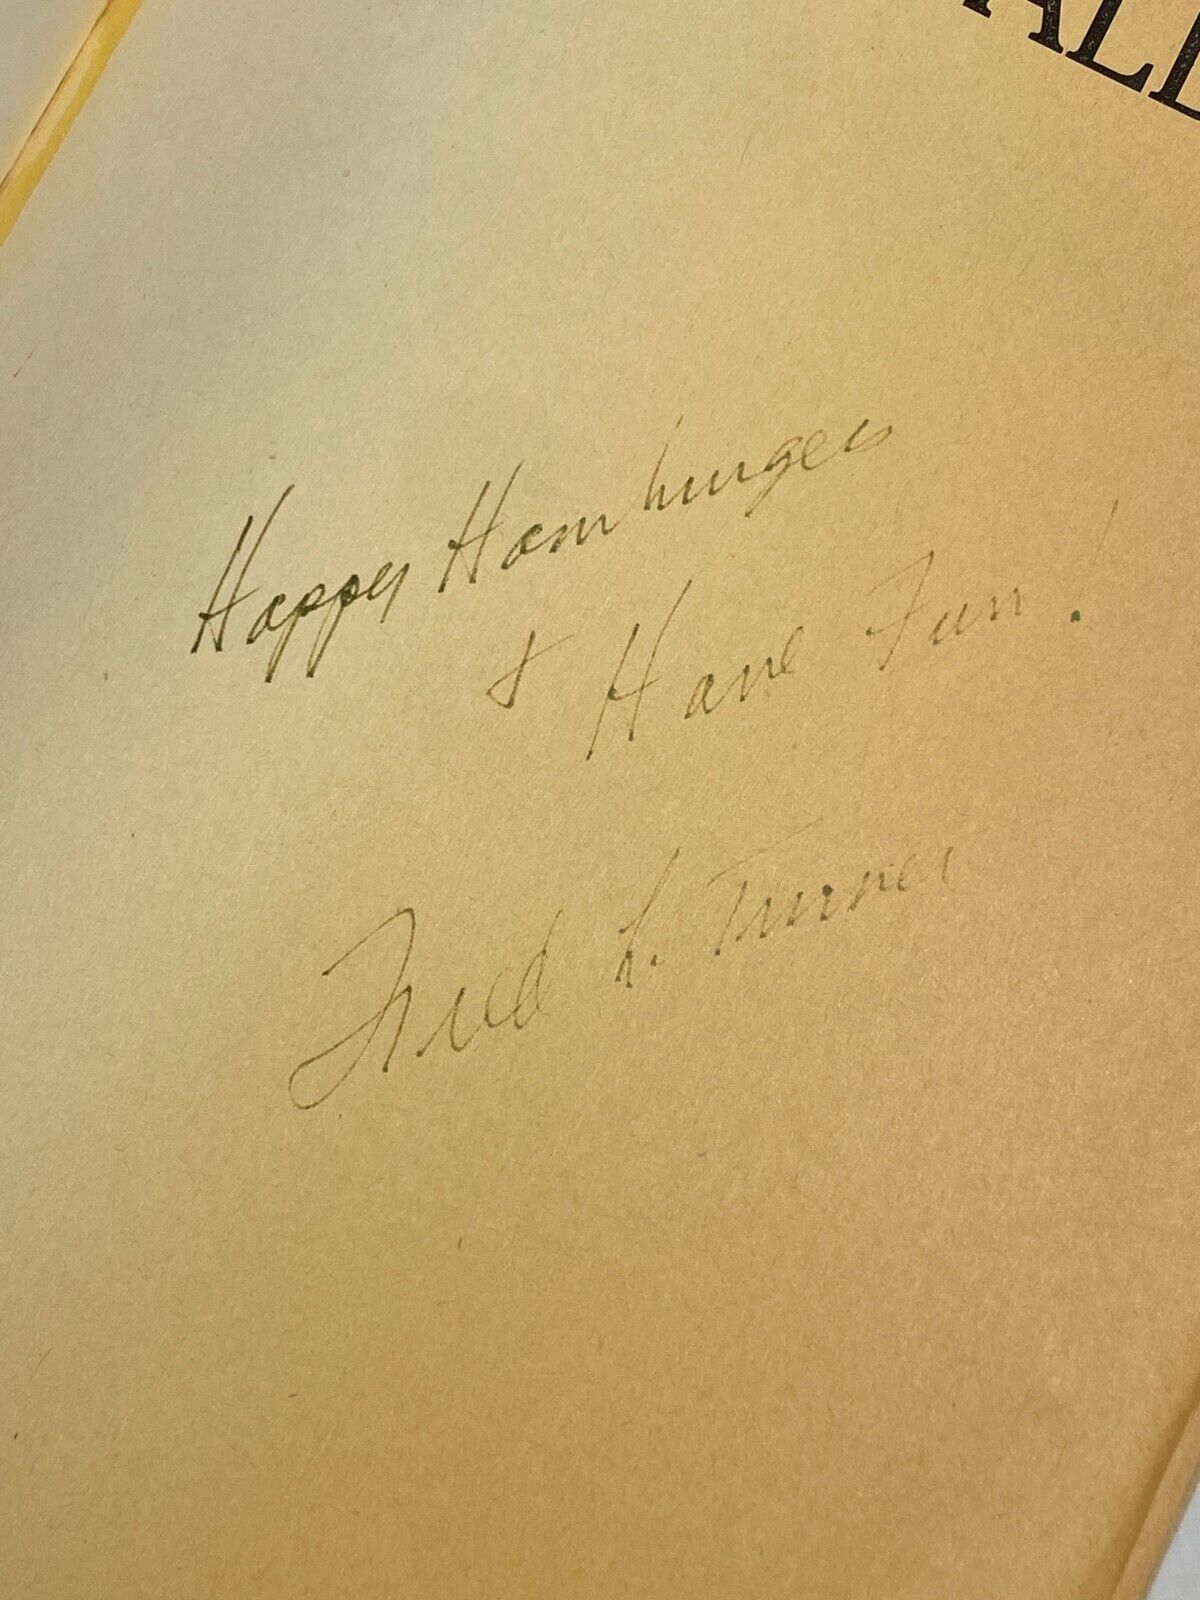 ALD
Happy Hamburgers
& Have Fun!
Fred L. Turner